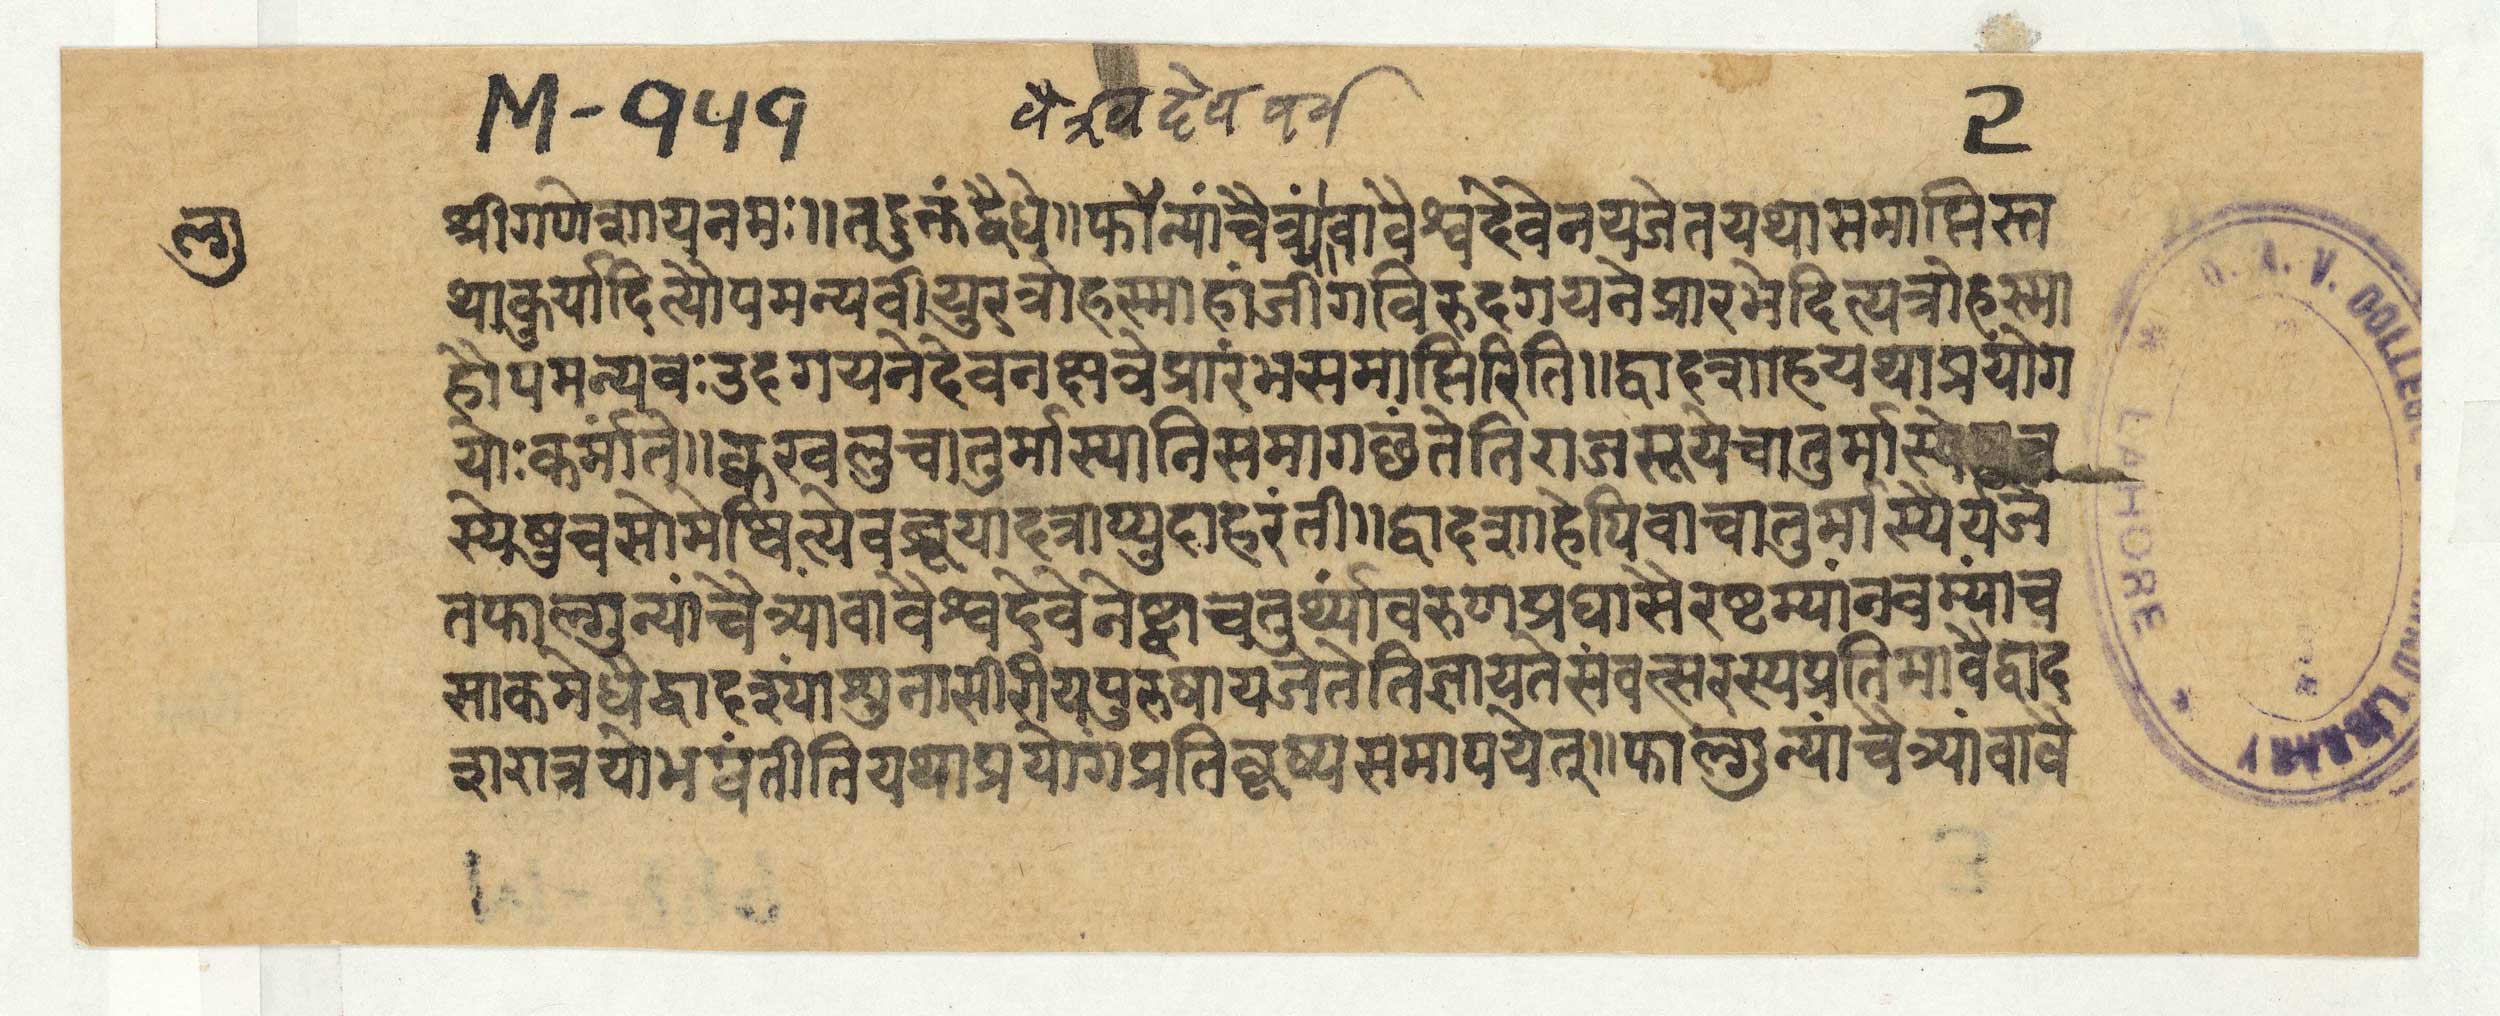 M-१५१ वैश्वदेवपर्व 2
ल्गु
श्रीगणेशायनमः॥तदुक्तंद्वैधे॥फाल्गुन्यांचैत्र्यांवावैश्वदेवेनयजेतयथासमाप्तिस्त
थाकुर्यादित्यौपमन्यवी
हौपमन्यवःउदगयनेदेवनक्षत्रेप्रारंभसमाप्तिरिति॥द्वादशाहयथाप्रयोग
योःकर्माते॥क्वखलुचातुर्मास्यानिसमागछंतेतिराजसूयेचातुर्मास्ये
स्येषुचसोमेष्वित्येवब्रूयादत्राप्युदाहरंती॥द्वादशाहेपिवाचातुर्मास्यैर्यजे
तफाल्गुन्यांचैत्र्यांवावैश्वदेवेनेष्ट्वाचतुर्थ्यांवरुणप्रघासैरष्टम्यांनवम्यांच
साकमेधैद्वादश्यांशुनासीरीयपुरुषायजेतेतिज्ञायतेसंवत्सरस्यप्रतिमावैद्वाद
शरात्रयोभवंतीतियथाप्रयोगप्रतिकृष्यसमापयेत्॥फाल्गुन्यांचैत्र्यांवावै
D. A. V. COLLEGE
LIBRARY
* LAHORE *